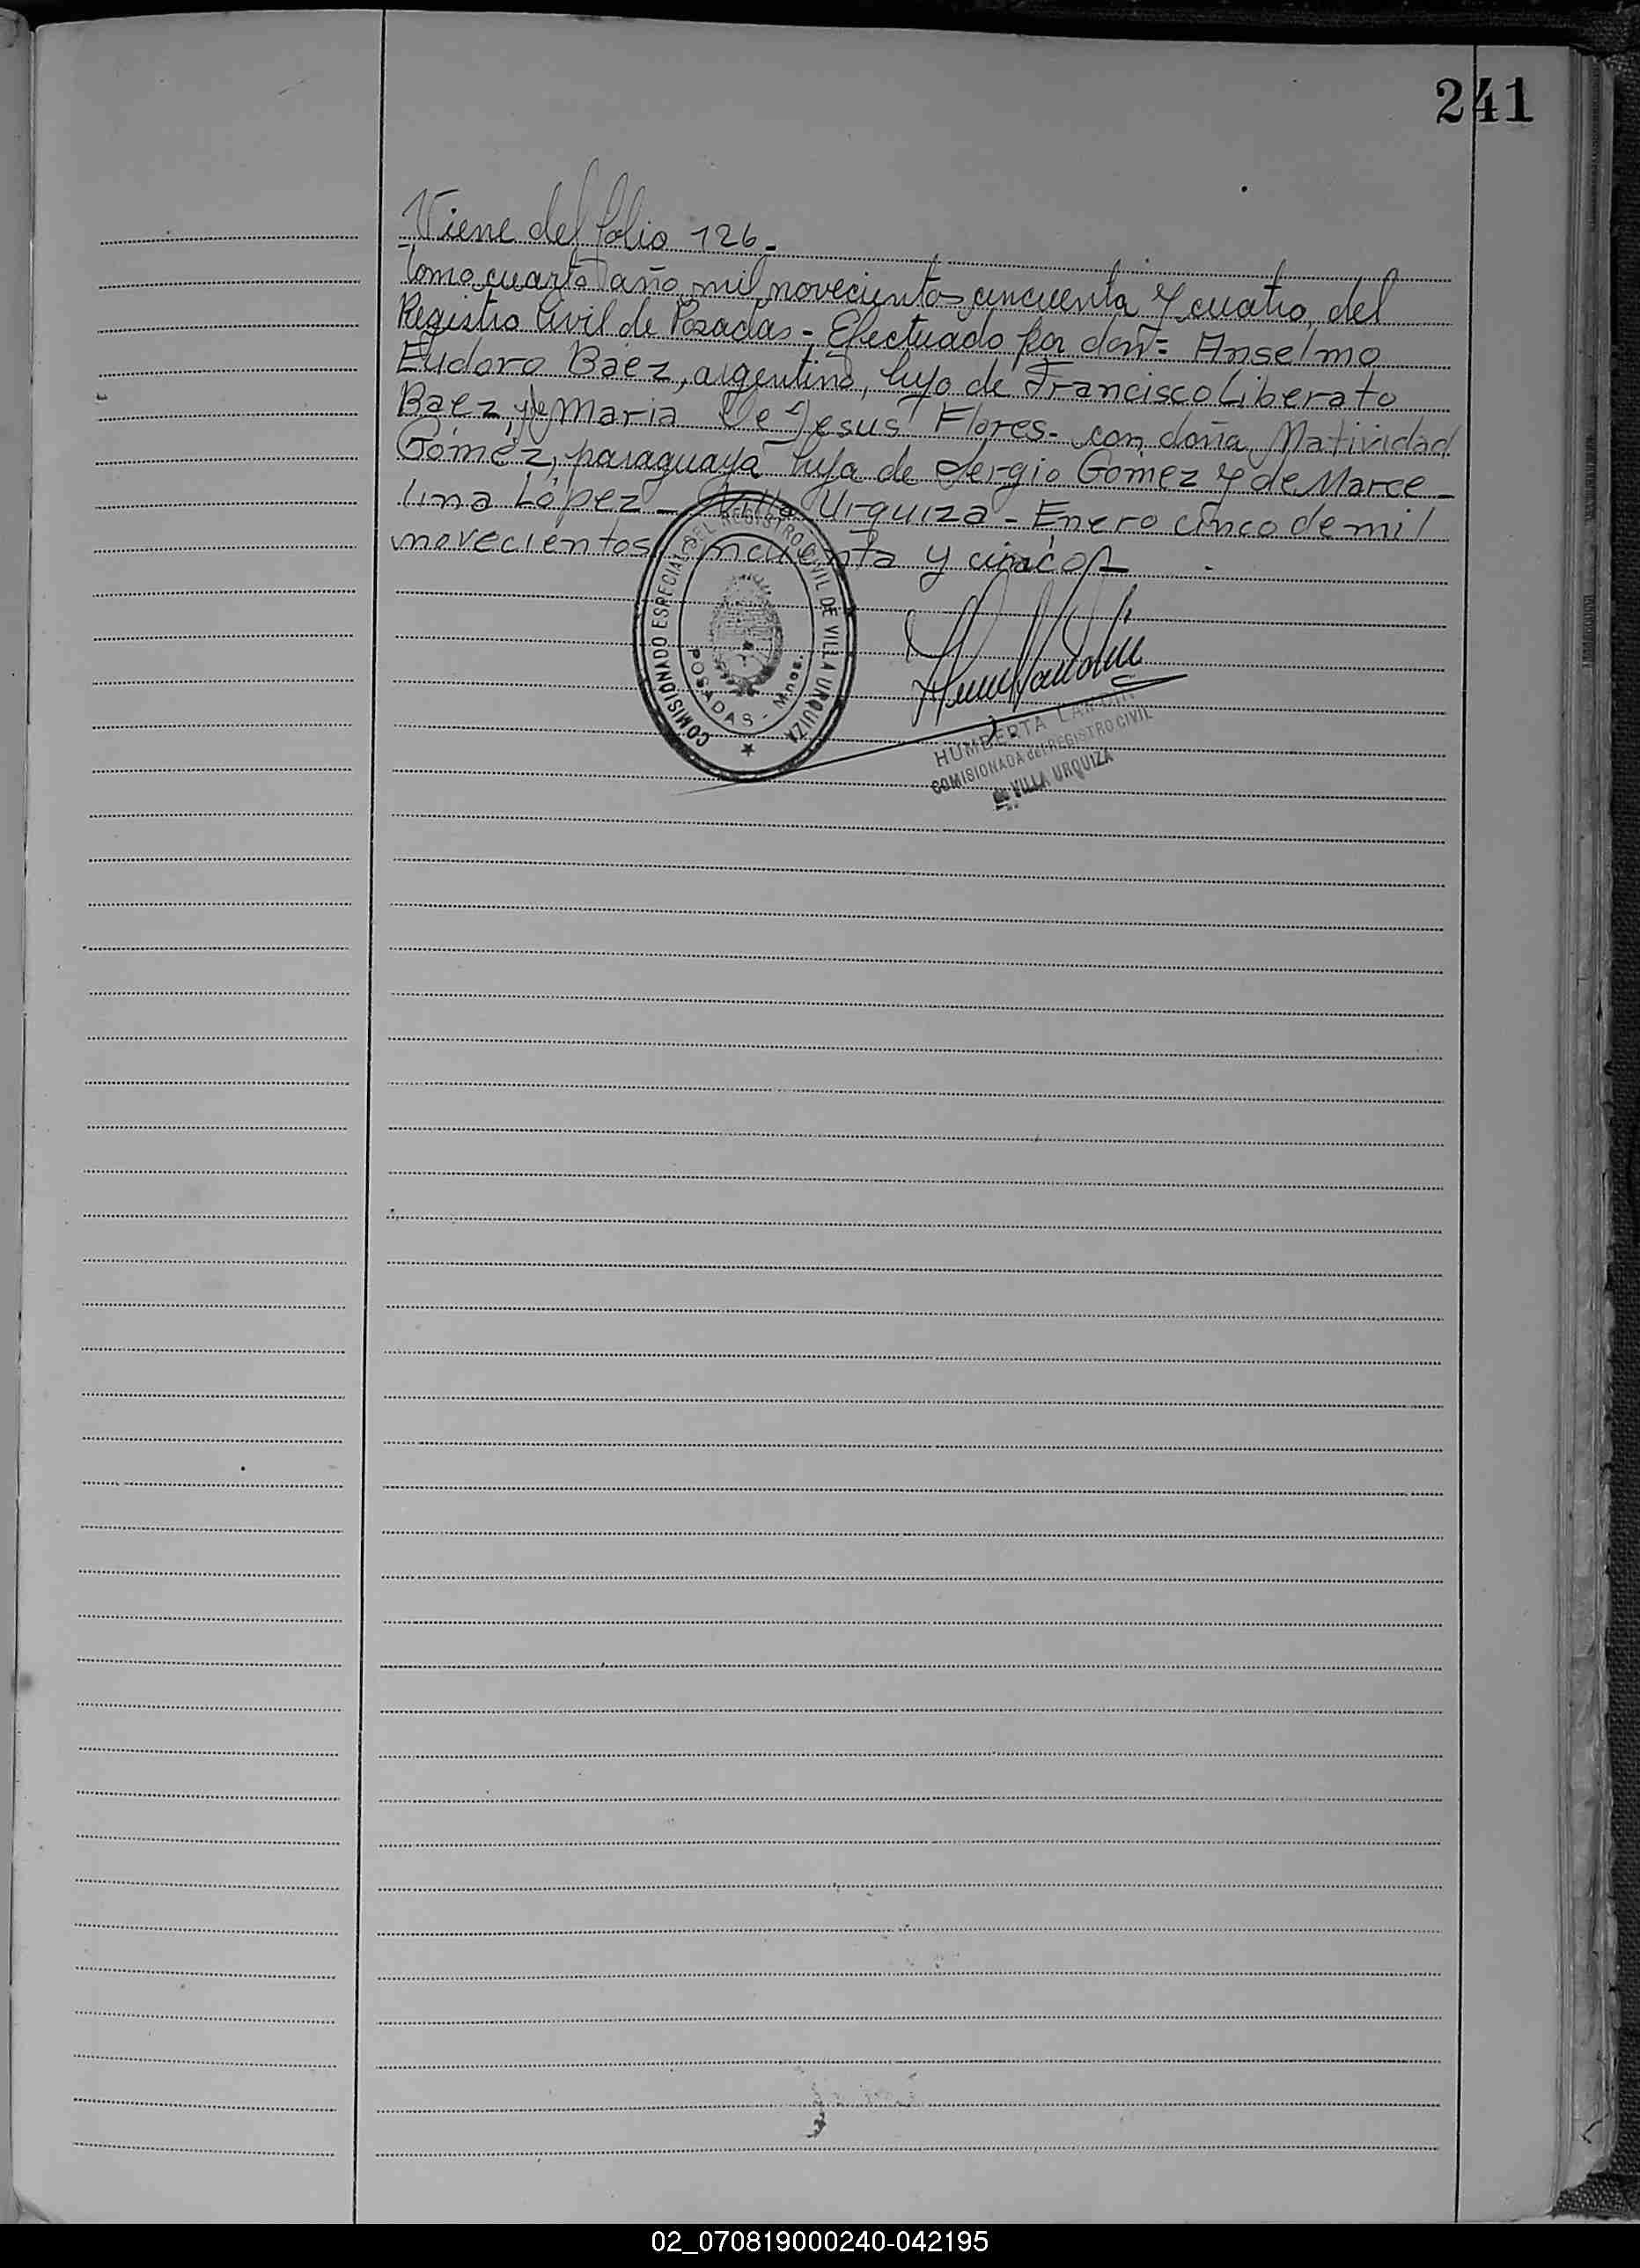 241
Viene del folio 126.-
tomo cuarto año mil novecientos cincuenta y cuatro, del
Registro Civil de Posadas - Efectuado por don = Anselmo
Eudoro Báez, argentino, hijo de Francisco Liberato
Baez y de Maria De Jesus Flores - con doña Natividad
Gómez, paraguaya hija de Sergio Gomez y de Marce-
lina López - Villa Urquiza - Enero cinco de mil
novecientos cincuenta y cinco
COMISIONADO ESPECIAL DEL REGISTRO CIVIL DE VILLA URQUIZA
POSADAS - Mnes.
HUMBERTA
COMISIONADA del REGISTRO CIVIL
de VILLA URQUIZA
02_070819000240-042195